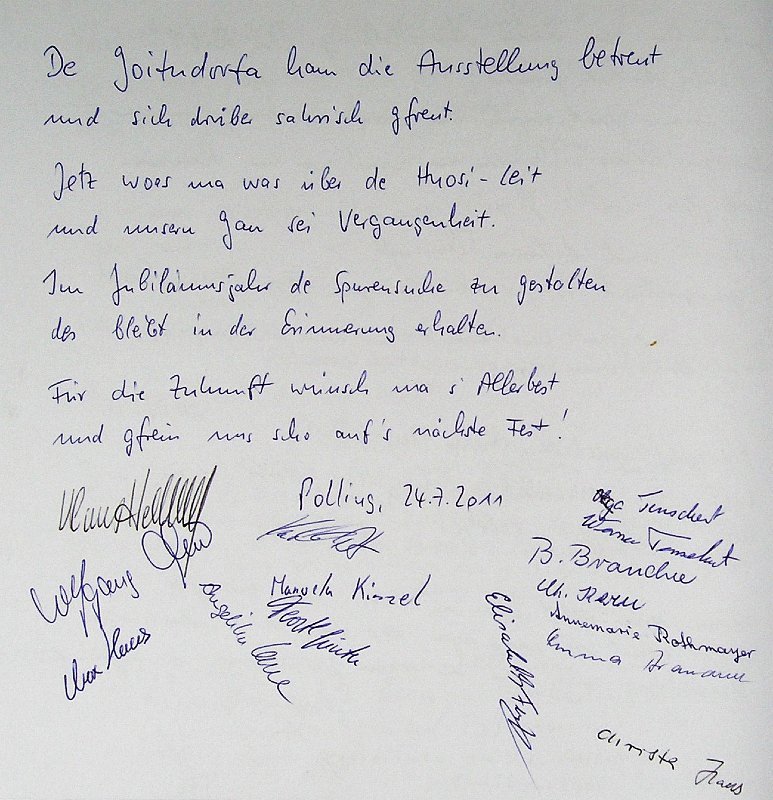 De Goitndorfa ham die Ausstellung betreut
und sich drüber sakrisch gfreut.
Jetz woas ma was über de Huosi-Leit
und unsern Gau sei Vergangenheit.
Im Jubiläumsjahr de Spurensuche zu gestalten
des bleibt in der Erinnerung erhalten.
Für die Zukunft wünsch ma s' Allerbest
und gfrein uns scho auf's nächste Fest!
Polling, 24.7.2011
Wolfgang
Manuela Kinzel
Angelika
Tenschert
Werner Tenschert
B.
Annemarie Rothmayer
Emma
Elisabeth
Christa